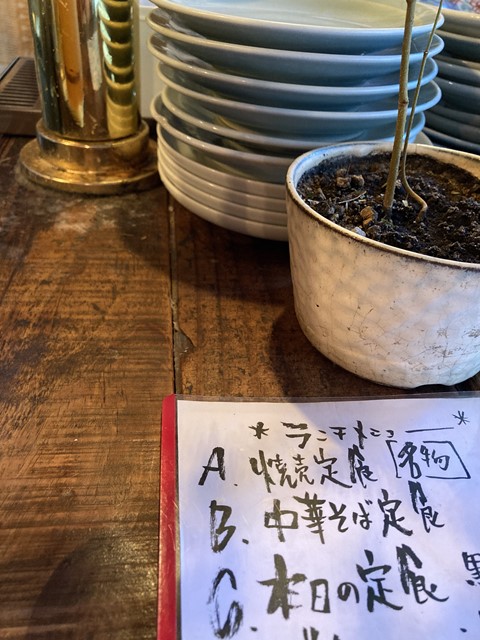 * ランチメニュー *
A. 焼売定食 名物
B. 中華そば定食
C. 本日の定食